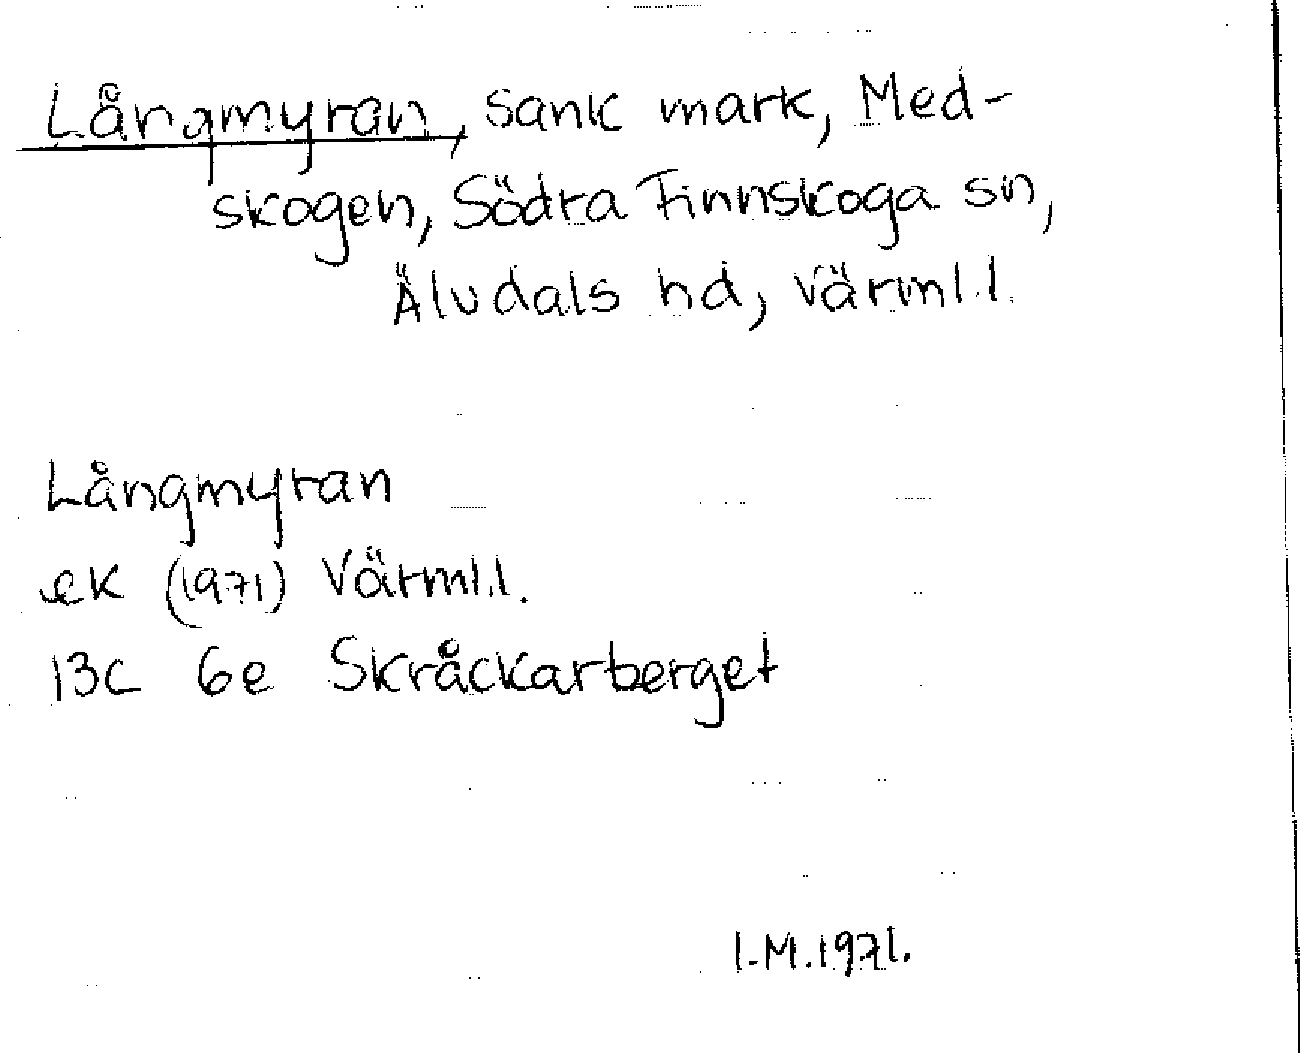 Långmyran, sank mark, Med-
skogen, Södra Finnskoga sn,
Älvdals hd, Värml.l.
Långmyran
ek (1971) Värml.l.
13C 6e Skråckarberget
I.M.1971.